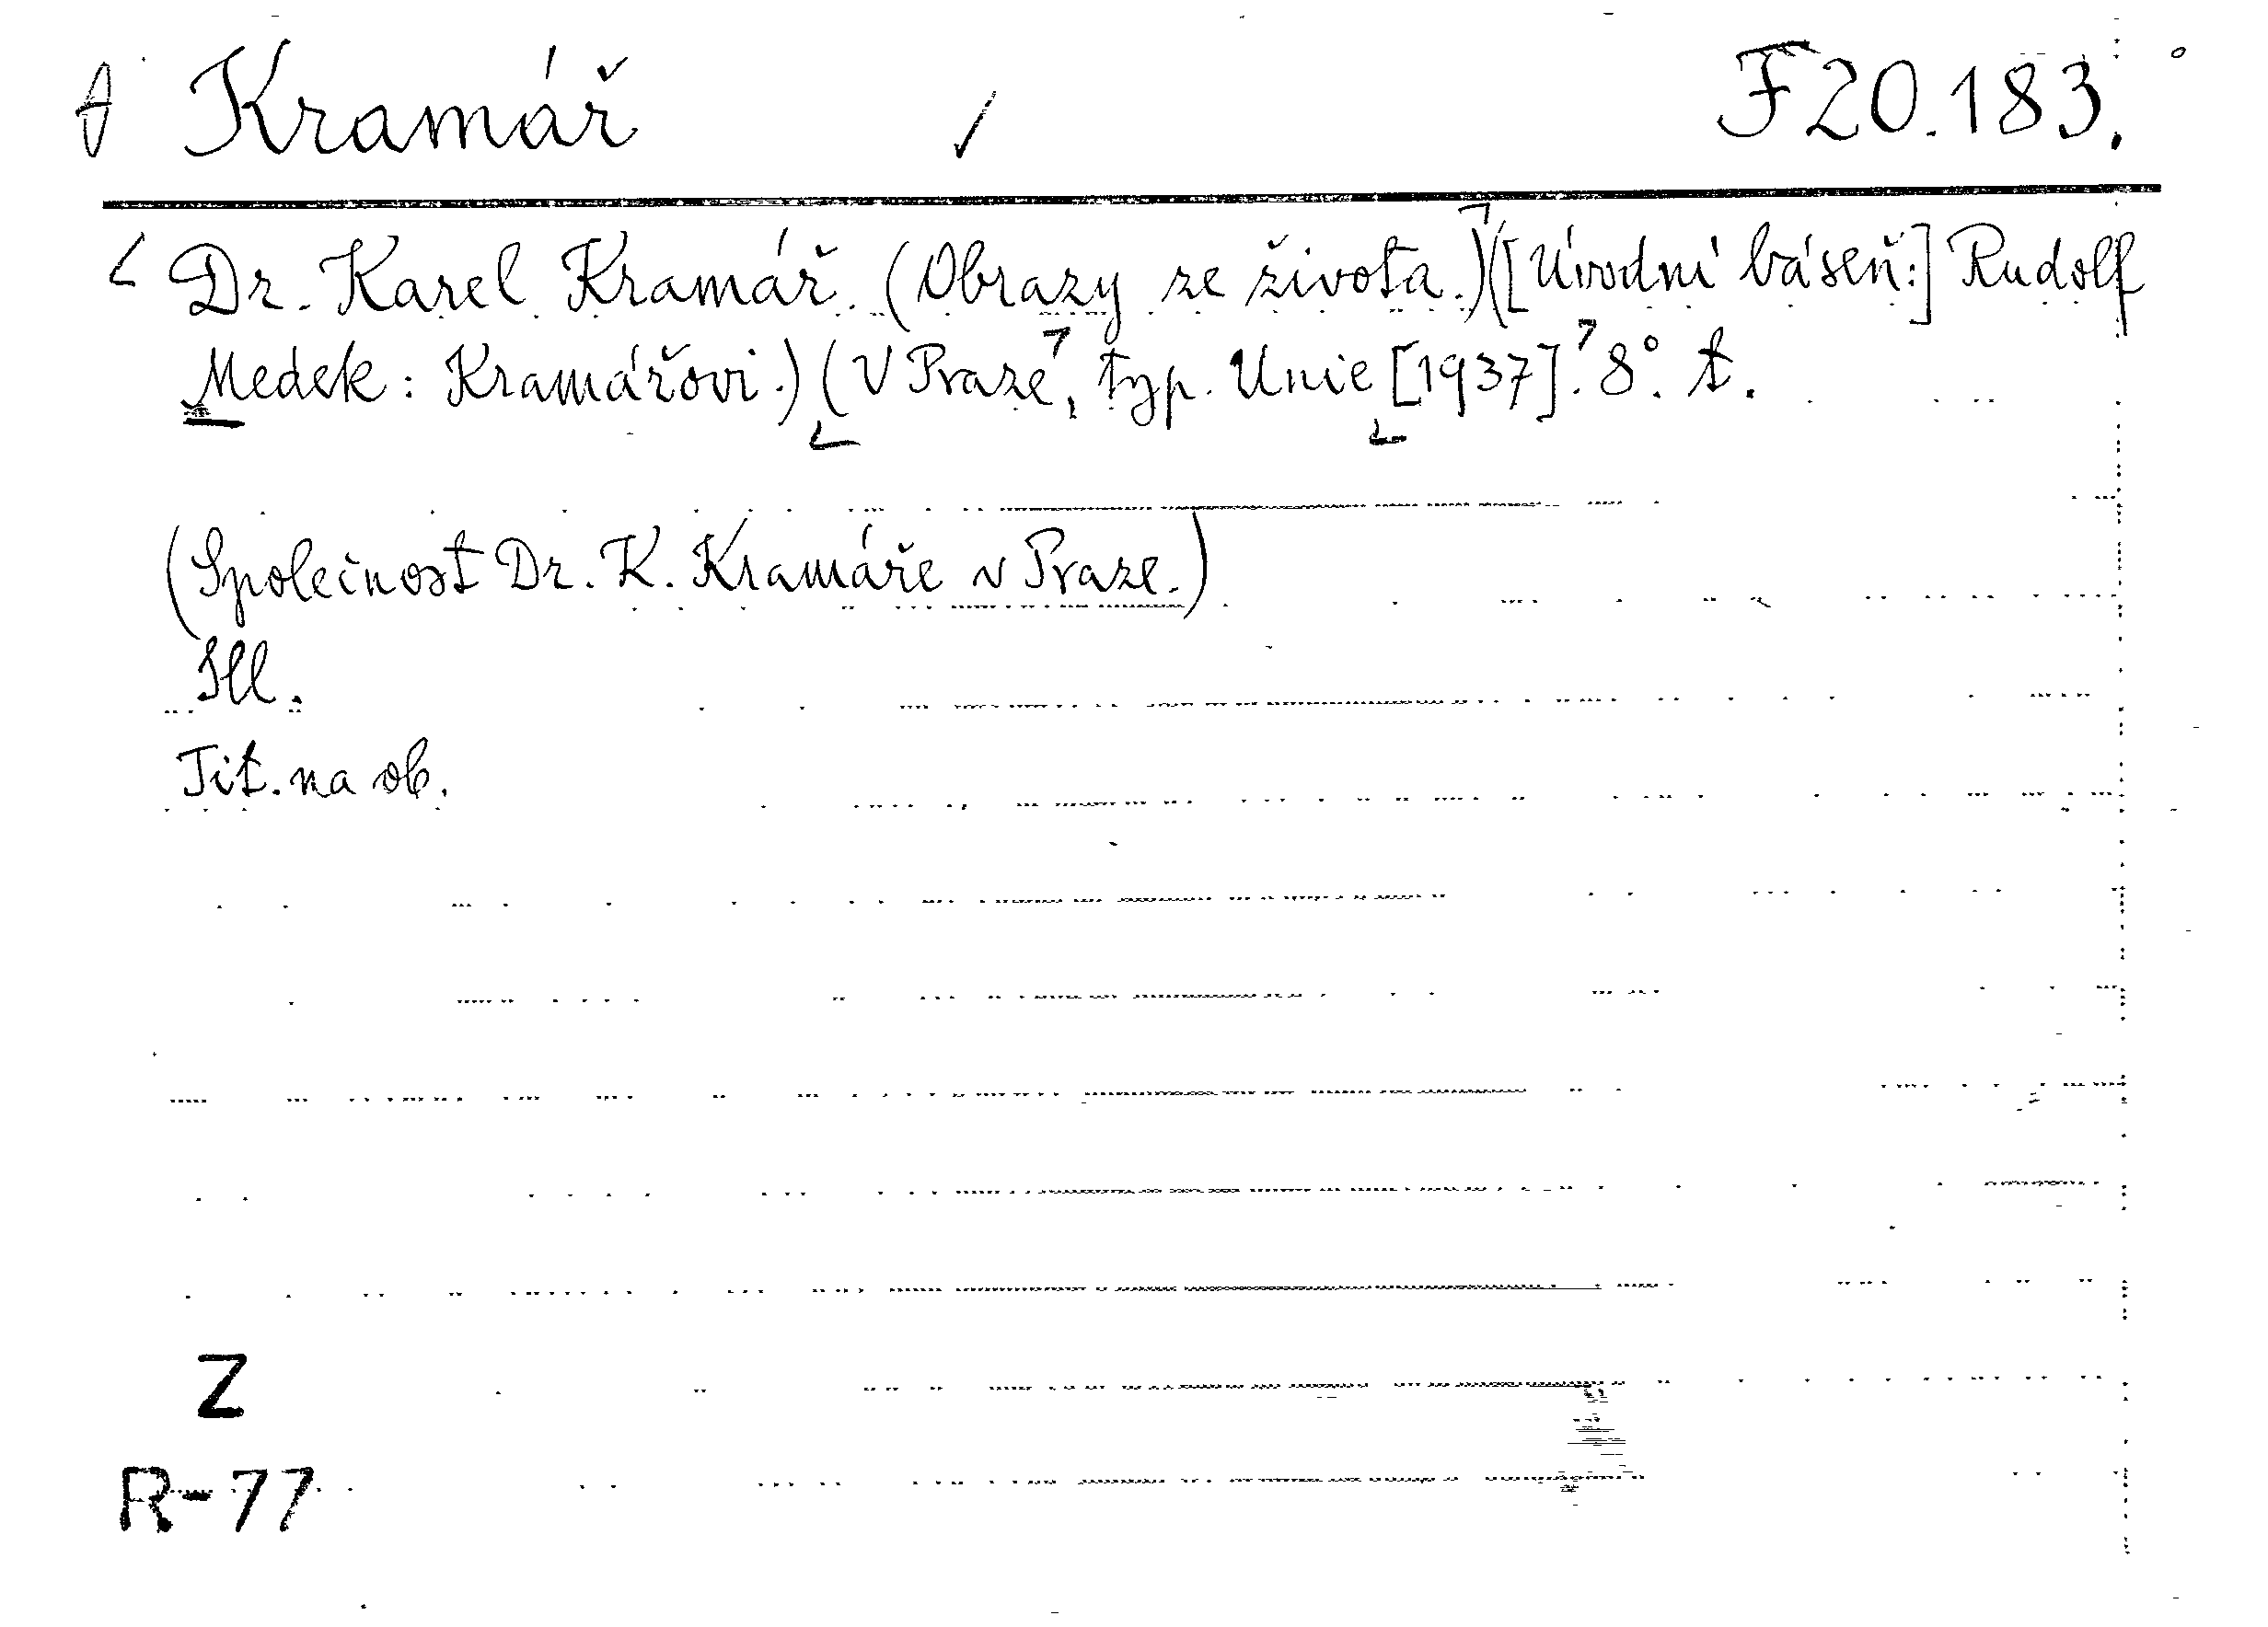 Kramář F 20.183.
Dr. Karel Kramář. (Obrazy ze života.) ([Úvodní báseň:] Rudolf
Medek: Kramářovi.) (V Praze, typ. Unie [1937]. 8°. t.
(Společnost Dr. K. Kramáře v Praze.)
Ill.
Tit. na ob.
Z
R-77